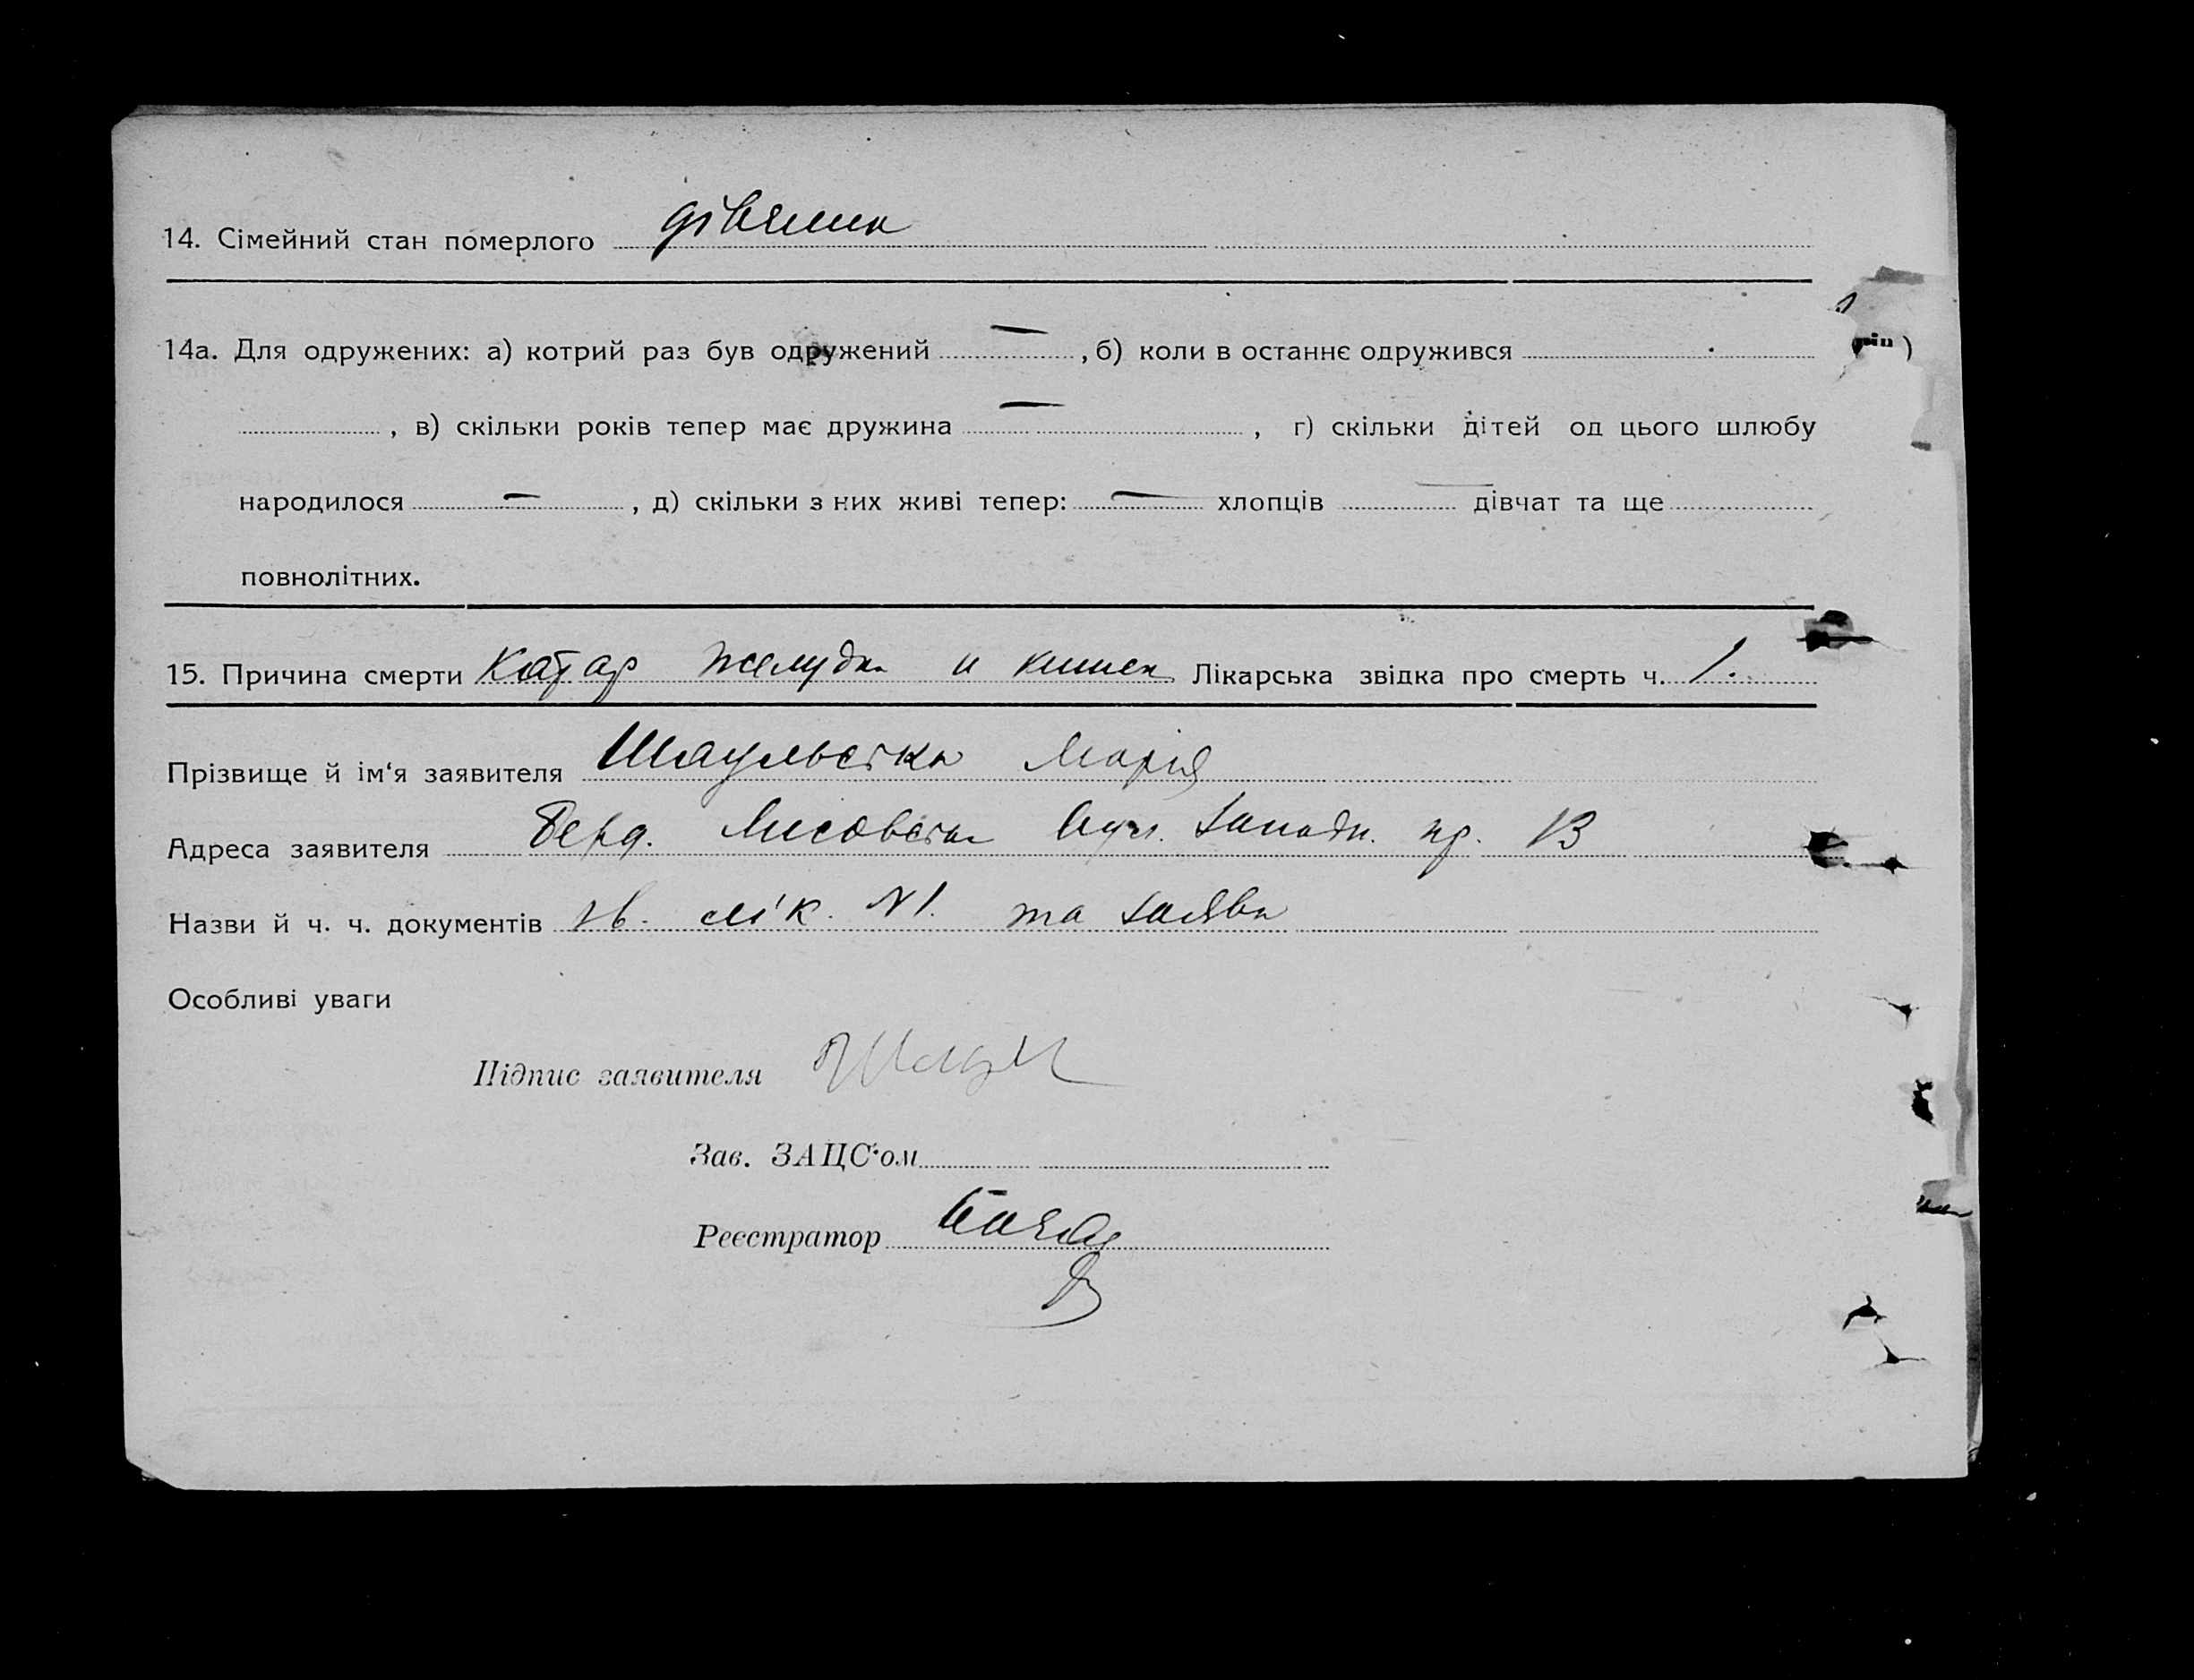 14. Сімейний стан померлого дівчина
14а. Для одружених: а) котрий раз був одружений — , б) коли в останнє одружився
, в) скільки років тепер має дружина — , г) скільки дітей од цього шлюбу
народилося — , д) скільки з них живі тепер: — хлопців — дівчат та ще
повнолітних.
15. Причина смерти Катар желудка и кишек Лікарська звідка про смерть ч. 1.
Прізвище й ім'я заявителя Шаульська Марія
Адреса заявителя Берд. Лисовська вул. Западн. пр. 13
Назви й ч. ч. документів зв. лік. №1. та заява
Особливі уваги
Підпис заявителя
Зав. ЗАЦС'ом
Реєстратор